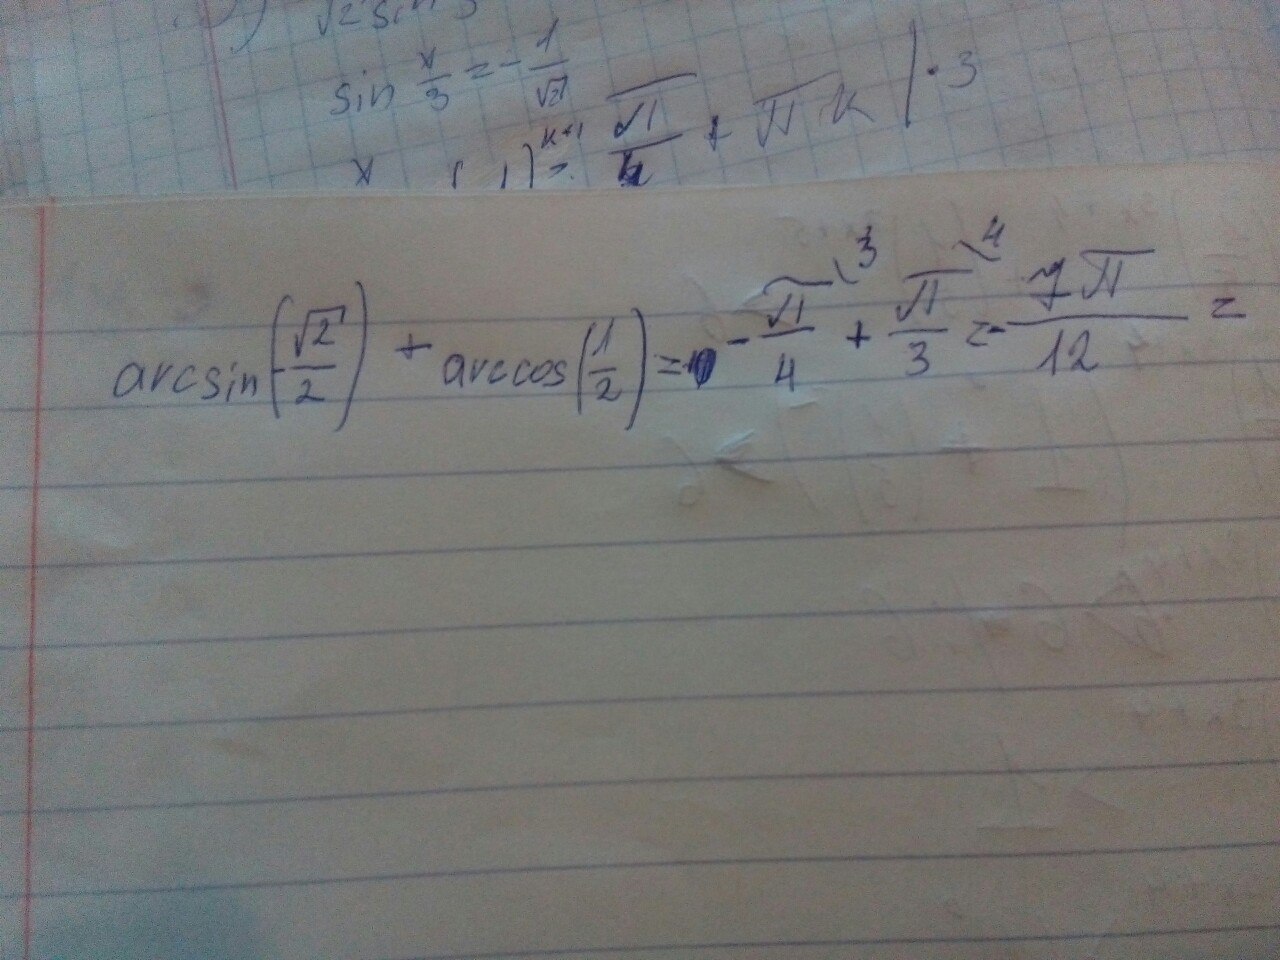 √2 sin
sin x/3 = -1/√2
x (-1)^(k+1) π/4 + πk | · 3
arcsin(-√2/2) + arccos(1/2) = -π/4 \3 + π/3 \4 = -7π/12 =